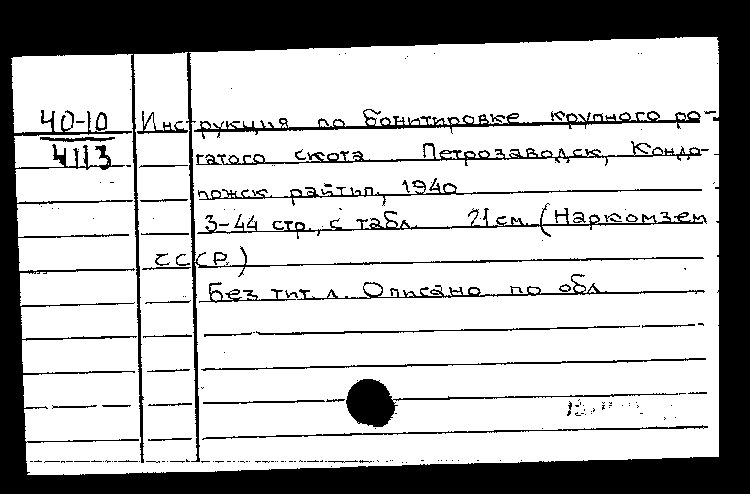 40-10
4113
Инструкция по бонитировке крупного ро-
гатого скота Петрозаводск, Кондо-
пожск. райтип., 1940
3-44 стр., с табл. 21 см. (Наркомзем
СССР)
Без тит. л. Описано по обл.